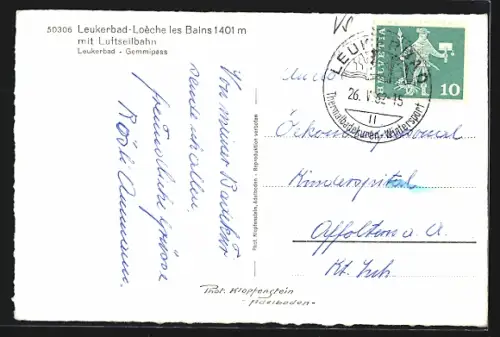 50306 Leukerbad-Loèche les Bains 1401 m
mit Luftseilbahn
Leukerbad - Gemmipass
Von meiner Badekur
sende ich allen
freundliche Grüsse
Rösli Ammann.
Phot. Klopfenstein, Adelboden - Reproduktion verboten
Phot. Klopfenstein
- Adelboden -
LEUKERBAD
26. V. 62-15
II
Thermalbadekuren-Wintersport
HELVETIA
10
Oekonomiepersonal
Kinderspital
Affoltern a. A.
Kt. Zch.